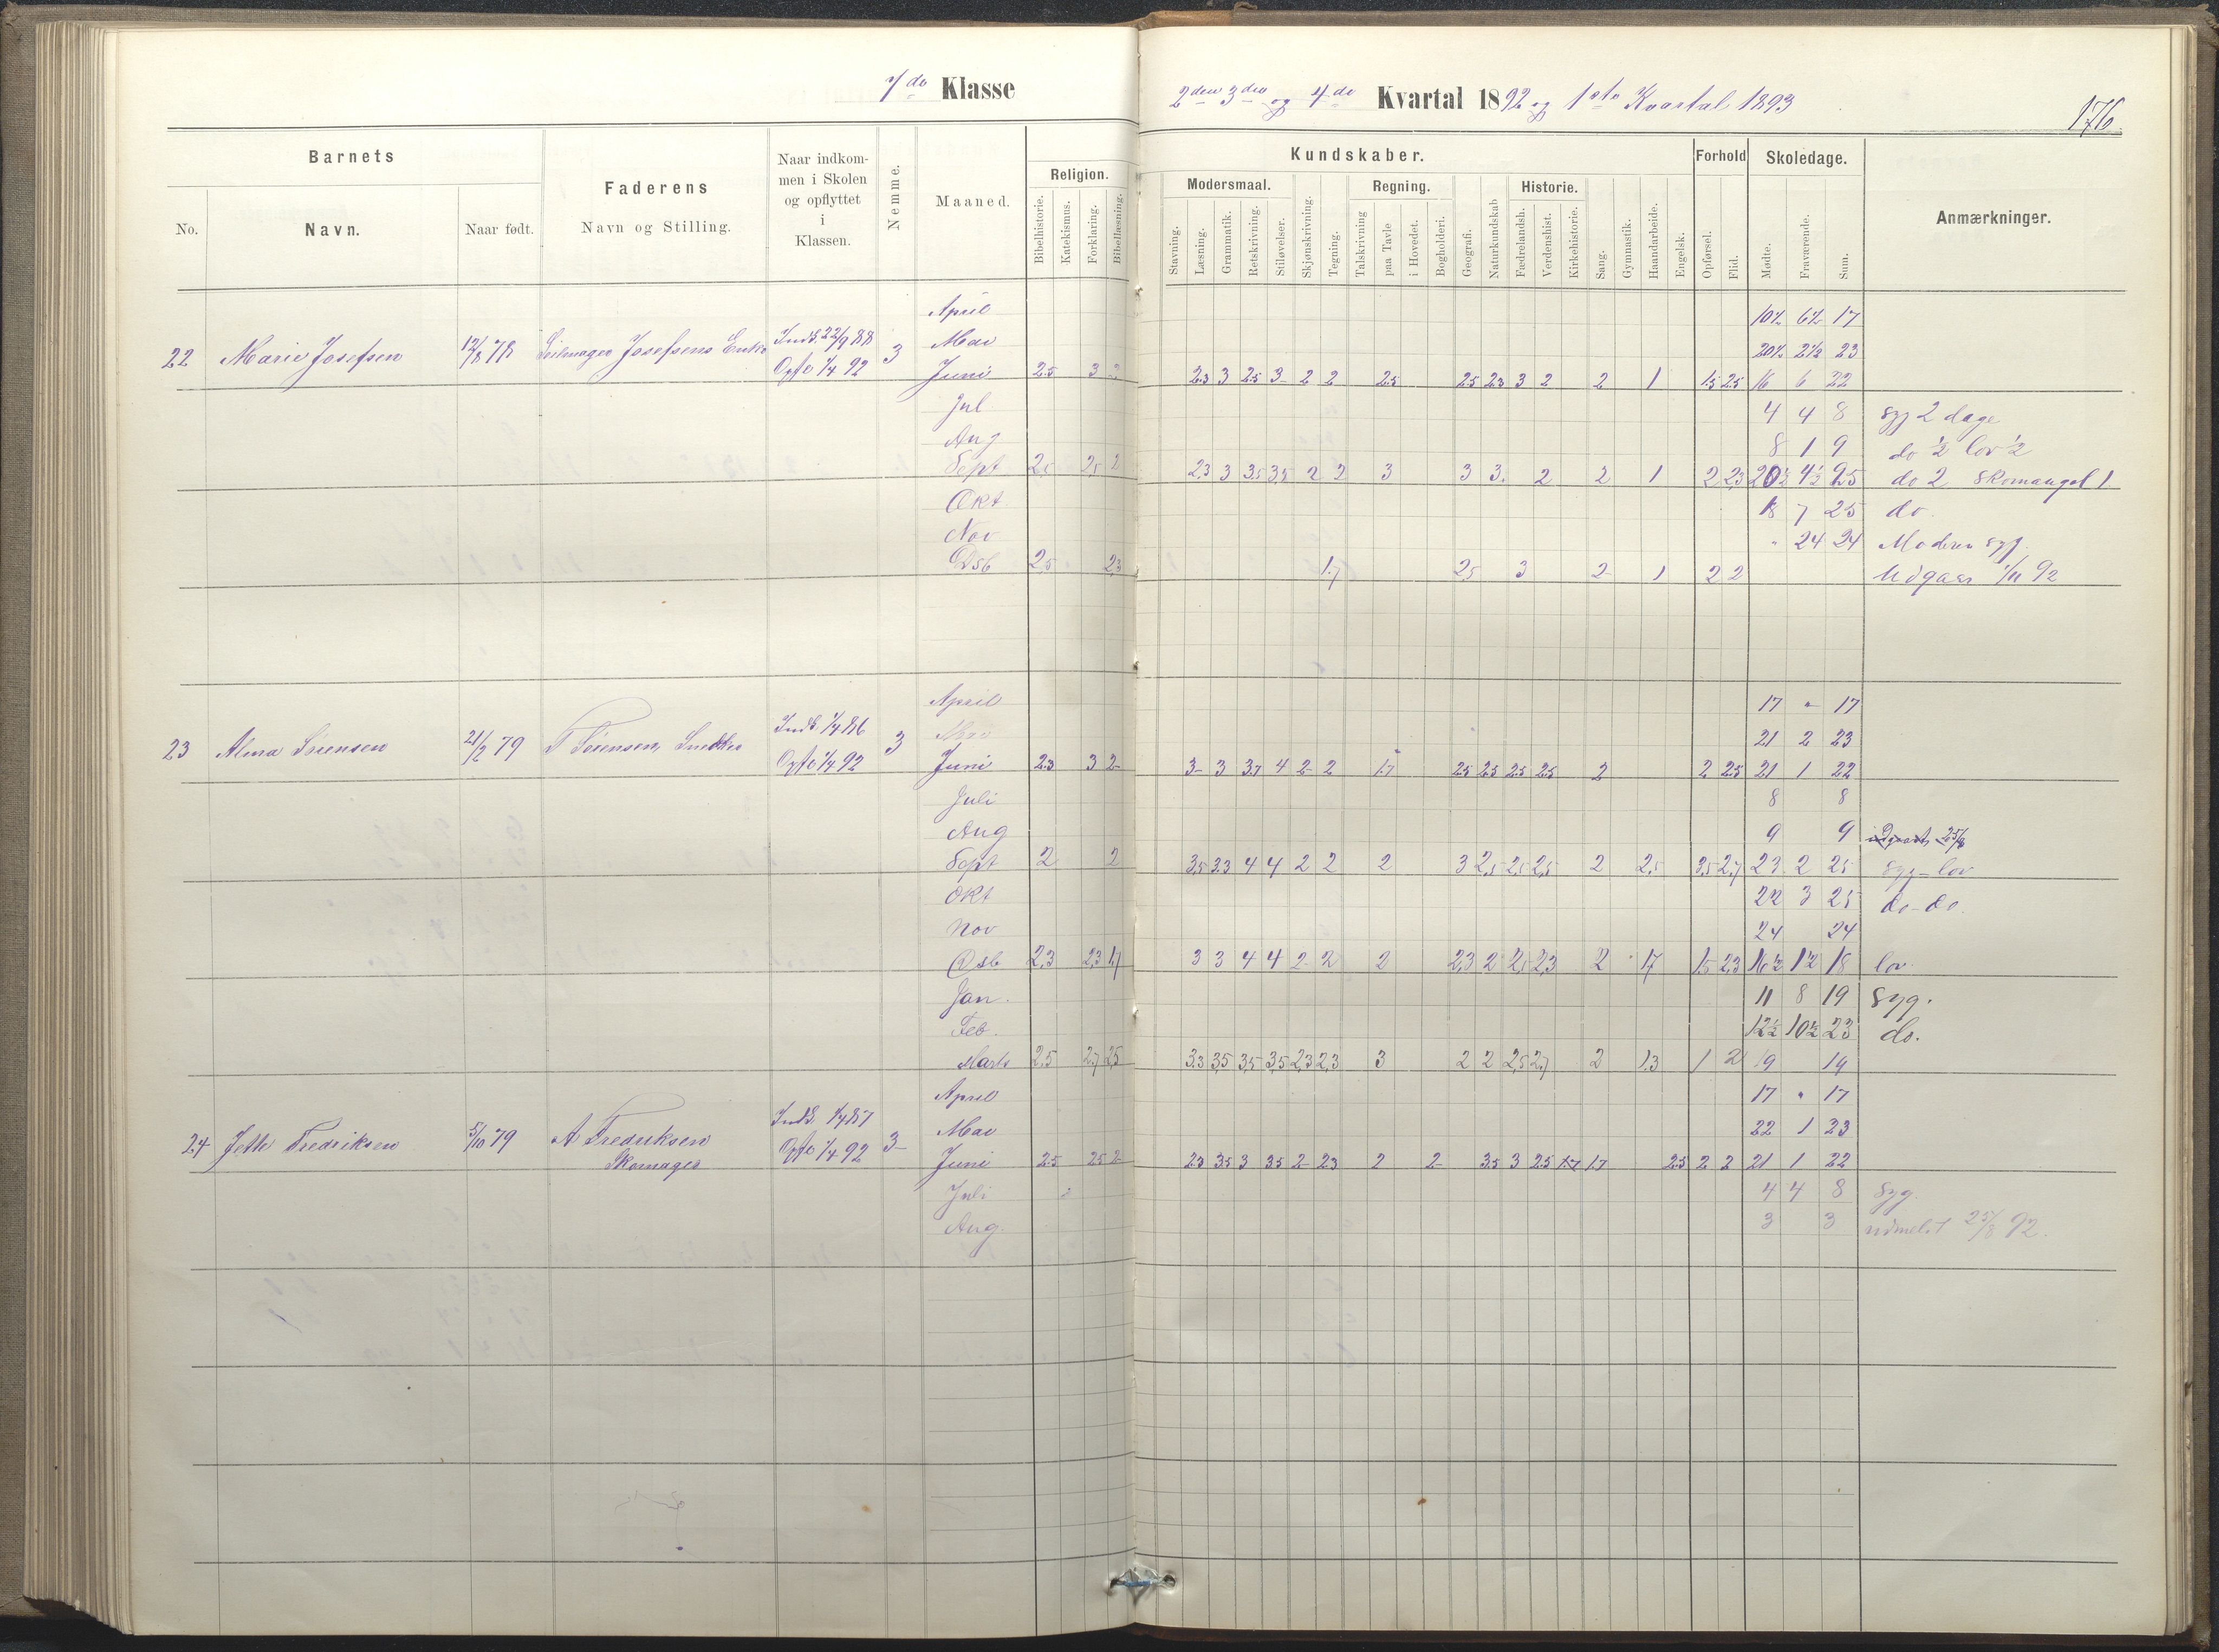 7de Klasse
2den 3die og 4de Kvartal 1892 og 1ste Kvartal 1893
176.
Barnets
Faderens
Naar indkommen i Skolen og opflyttet i Klassen.
Nemme.
Maaned.
Religion.
Kundskaber.
Forhold
Skoledage.
Anmærkninger.
Modersmaal.
Regning.
Historie.
No.
Navn.
Naar født.
Navn og Stilling.
Bibelhistorie.
Katekismus.
Forklaring.
Bibellæsning.
Stavning.
Læsning.
Grammatik.
Retskrivning.
Stiløvelser.
Skjønskrivning.
Tegning.
Talskrivning
paa Tavle
i Hovedet.
Bogholderi.
Geografi.
Naturkundskab
Fædrelandsh.
Verdenshist.
Kirkehistorie.
Sang.
Gymnastik.
Haandarbeide.
Engelsk.
Opførsel.
Flid.
Mødte.
Fraværende.
Sum.
April 10½ 6½ 17
22 Marie Josefsen 12/8 78 Josefsens Enke Inds. 22/9 88 3 Mai 20½ 2½ 23
Opfl 1/4 92 Juni 2.5 3 2 2.3 3 2.5 3- 2 2 2.5 2.5 2.3 3 2 2 1 1.5 2.5 16 6 22
Jul 4 4 8 syg 2 dage
Aug 8 1 9 do ½ lov ½
Sept 2,5 2,5 2 2,3 3 3,5 3,5 2 2 3 3 3. 2 2 1 2 2,3 20½ 4½ 25 do 2 Skomangel 1
Okt 18 7 25 do.
Nov " 24 24 Moderen syg
Dsb 2,5 2,3 1.7 2,5 3 2 1 2 2 Udgaar 1/11 92
April 17 " 17
23 Alma Sørensen 21/2 79 Sørensen, Snedker Inds 1/4 86 3 Mai 21 2 23
Opfl 1/4 92 Juni 2.3 3 2 3- 3 3.7 4 2 2 1.7 2.5 2.5 2.5 2.5 2 2 2.5 21 1 22
Juli 8 8
Aug 9 9 udgaat 25/8
Sept 2 2 3,5 3.3 4 4 2 2 2 3 2,5 2,5 2,5 2 2,5 3,5 2,7 23 2 25 syg - lov
Okt 22 3 25 do - do.
Nov 24 24
Dsb 2,3 2,3 1,7 3 3 4 4 2 2 2 2,3 2 2,5 2,3 2 1,7 1,5 2,3 16½ 1½ 18 lov.
Jan. 11 8 19 syg.
Feb. 12½ 10½ 23 do.
Marts 2,5 2,7 2,5 3.3 3,5 3,5 3,5 2,3 2,3 3 2 2 2,5 2,7 2 1.3 1 2 19 19
April 17 " 17
24 Jette Fredriksen 5/10 79 A Fredriksen Inds 1/4 87 3- Mai 22 1 23
Skomager Opfl 1/4 92 Juni 2.5 2.5 2 2.3 3.5 3 3.5 2 2.3 2 2 3.5 3 2.5 1.7 1.7 2.5 2 2 21 1 22
Juli 4 4 8 syg.
Aug. 3 3 udmeldt 25/8 92.